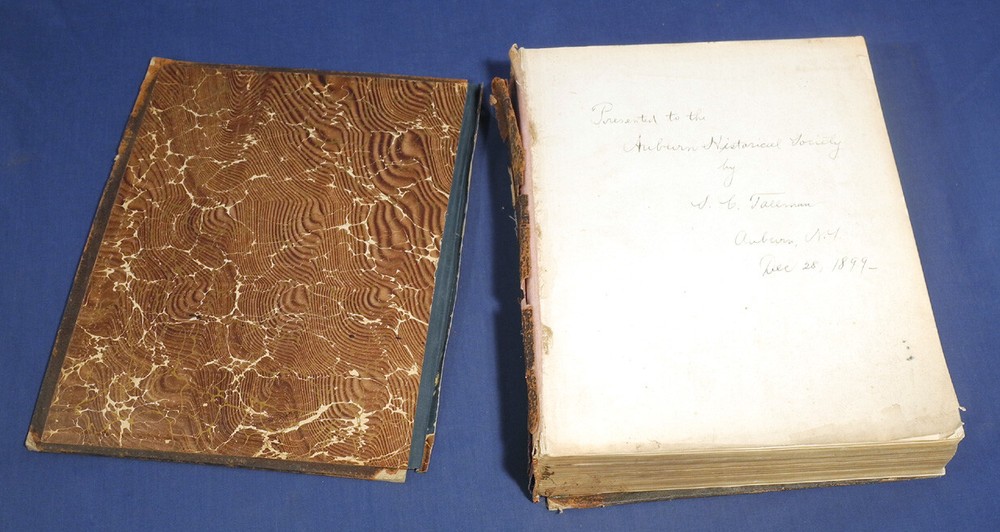 Presented to the
Auburn Historical Society
by
S. C. Tallman
Auburn, N.Y.
Dec 28, 1899_